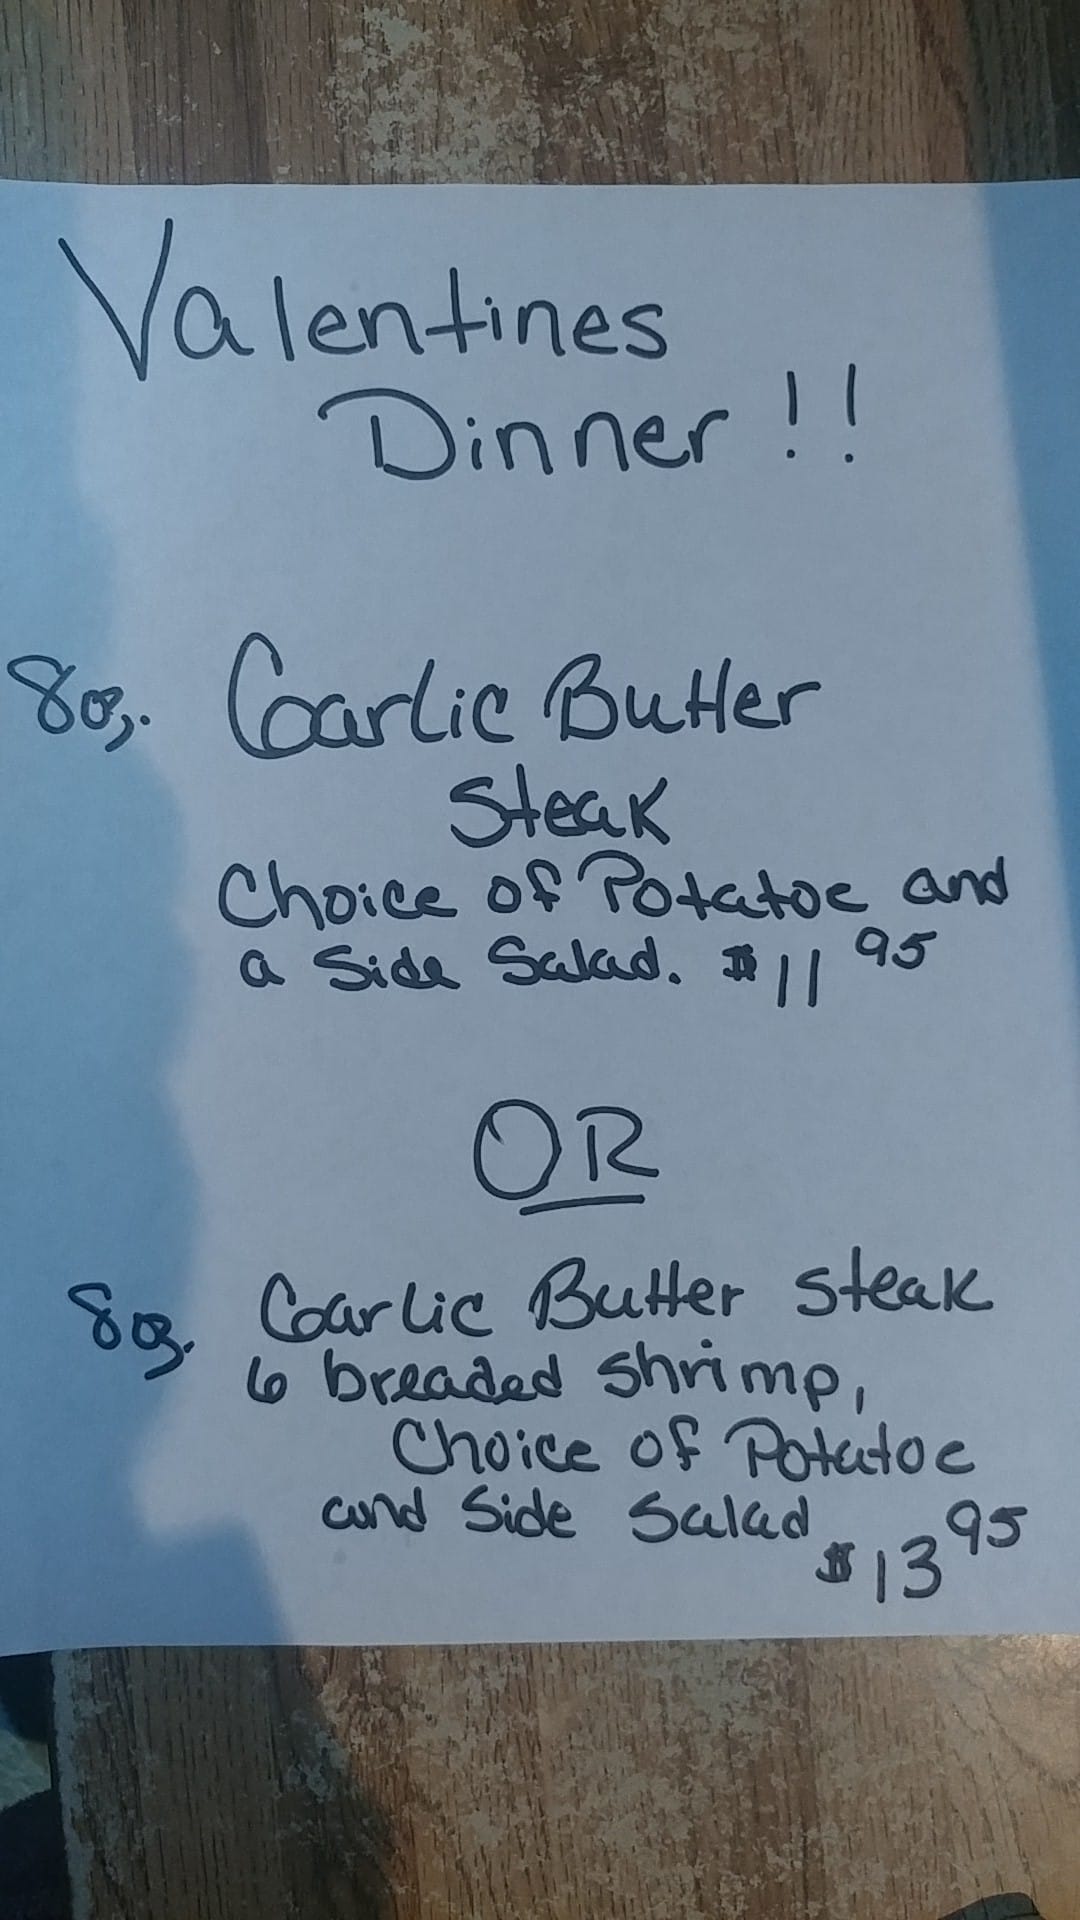 Valentines
Dinner!!
8oz. Garlic Butter
Steak
Choice of Potatoe and
a Side Salad. $11 95
OR
8oz. Garlic Butter Steak
6 breaded Shrimp,
Choice of Potatoe
and Side Salad
$13 95